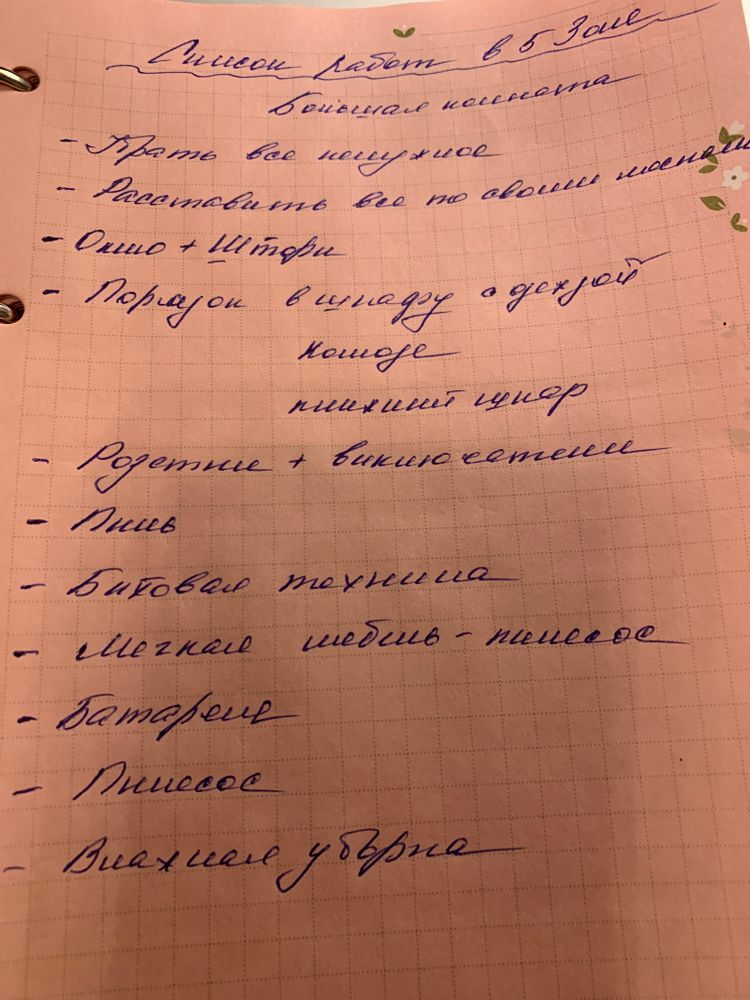 Список работ в 5 Зоне
Большая комната
- Убрать все ненужное
- Расставить все по своим местам
- Окно + Штори
- Порядок в шкафу с одеждой
комоде
книжний шкаф
- Розетки + виключатели
- Пыль
- Битовая техника
- Мягкая мебель - пилесос
- Батарея
- Пылесос
- Влажная уборка